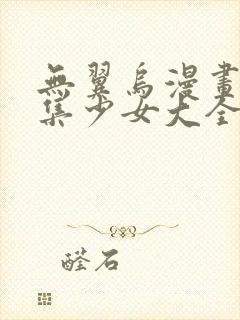 無翼烏漫畫
集少女大全
醛石